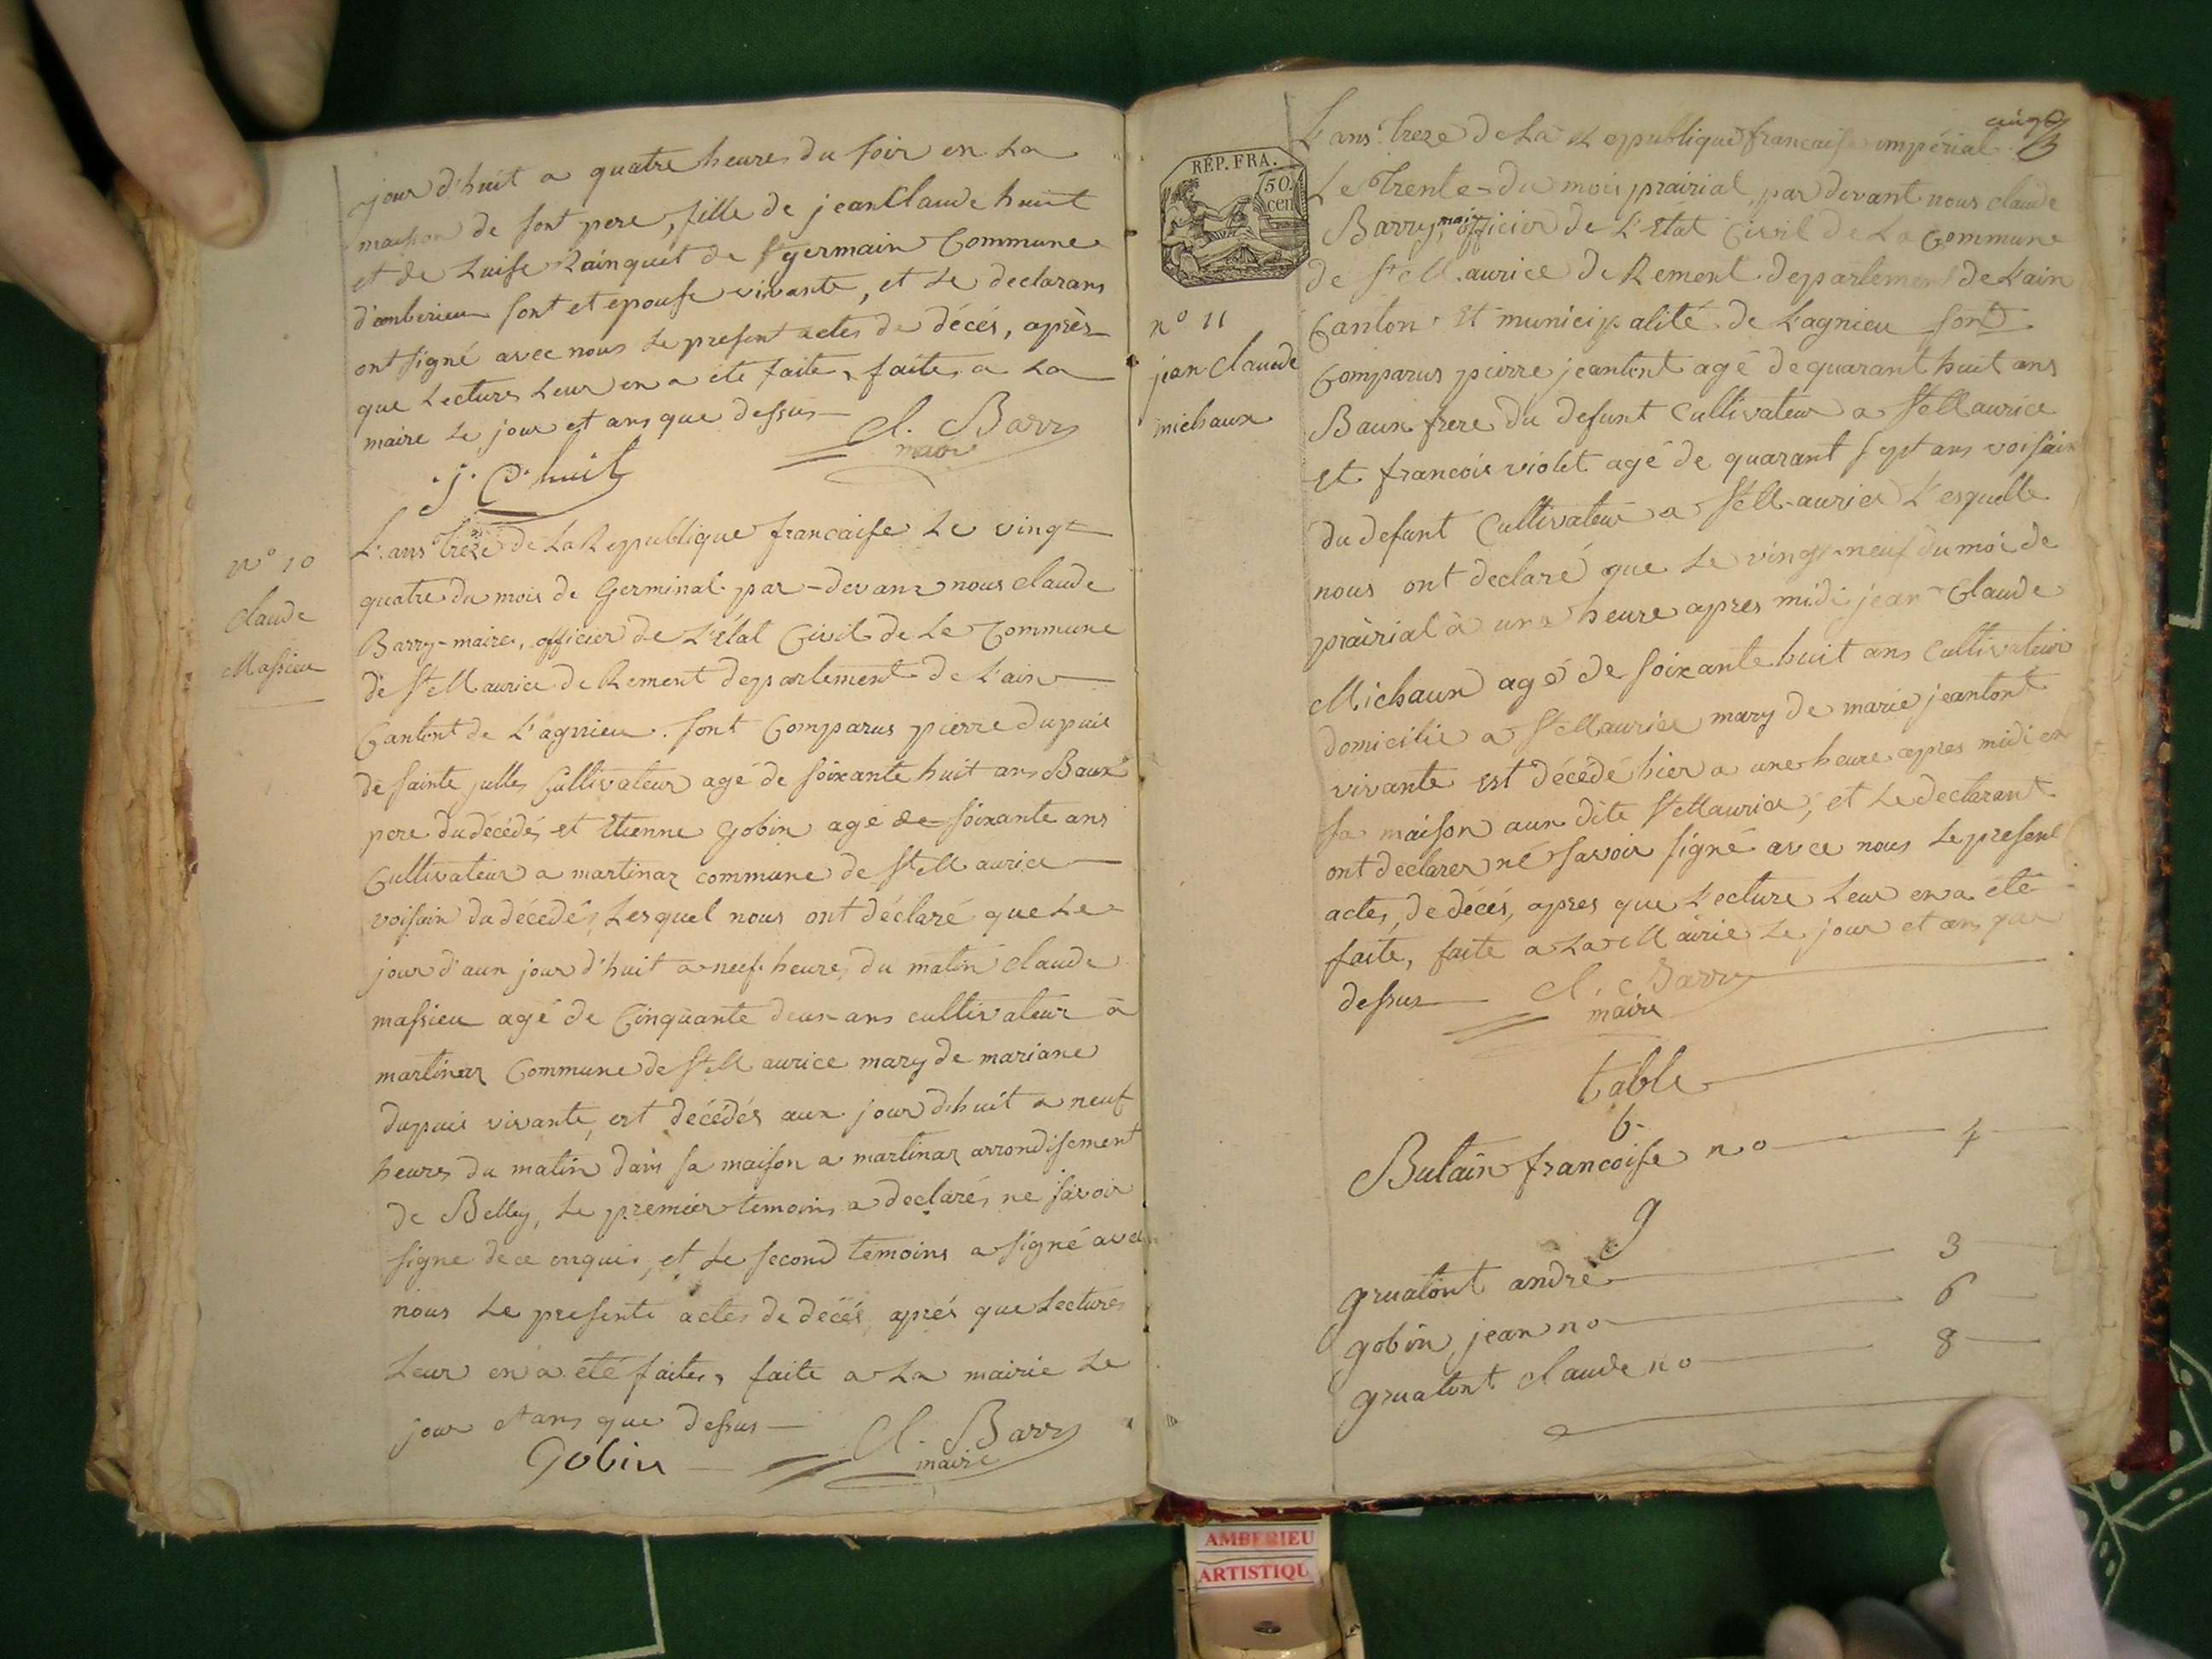 jour d'huit a quatre heures du soir en La
maison de sont pere, fille de jean Claude huit
et de Luise Rainquet de St germain Commune
d'amberieu sont et epouse vivante, et Le declarans
ont signé avec nous Le present actes de décés, après
que Lectures Leur en a été faite, faite, a La
maire Le jour et ans que dessus
Cl. Barry
maire
j. C. huit
n° 10
Claude
Massieu
L'ans treze de La Republique francaise Le vingt
quatre du mois de Germinal par-devant nous Claude
Barry-maire, officier de L'État Civil de Le Commune
de St Maurice de Rement departement de L'ain
Cantont de L'agnieu. sont Comparus pierre dupuis
de sainte julle Cultivateur agé de soixante huit ans Baux
pere du décédé, et Etienne gobin agé de soixante ans
Cultivateur a martinaz commune de St Maurice
voisain du décédé, Lesquel nous ont déclaré que Le
jour d'aux jour d'huit a neuf heures, du matin Claude
massieu agé de Cinquante deux ans cultivateur a
martinaz Commune de St Maurice mary de mariane
dupuis vivante, est décédés aux jour dhuit a neuf
heures du matin dans sa maison a martinaz arrondisement
de Belley, Le premier temoins a declarés, ne savoir
signe de ce enquis, et Le second temoins a signé avec
nous Le presente actes de décés, aprés que Lectures
Leur en a été faites, faite a La mairie Le
jour et ans que dessus
Gobin
Cl. Barry
maire
RÉP. FRA.
50
cen
n° 11
jean Claude
michaux
L'ans treze de La Republique francaise impérial
Le trente-du mois prairial, par devant nous claude
Barry, maire officier de L'État Civil de La Commune
de St Maurice de Rement departement de L'ain
Canton et municipalité de Lagnieu sont
Comparus pierre jeantont agé de quarant huit ans
Baux frere du defunt Cultivateur a St Maurice
et francois violet agé de quarant sept ans voisain
du defunt Cultivateur a St Maurice L'esquelle
nous ont declaré que Le vingt-neuf du moi de
prairial à une heure apres midi jean Claude
Michaux agé de soixante huit ans Cultivateur
domicilié a St Maurice mary de marie jeantont
vivante est décédé hier a une heure apres midi en
sa maison aux dite St Maurice, et Le declarant
ont declarer né savoir signé avec nous Le present
actes, de décés, apres que L'ecture Leur en a été
faite, faite a La Mairie Le jour et ans que
dessus
Cl. Barry
maire
table
b
Bulain francoise no 4
g
gruatont andré 3
gobin jean no 6
gruatont claude no 8
AMBERIEU
ARTISTIQU